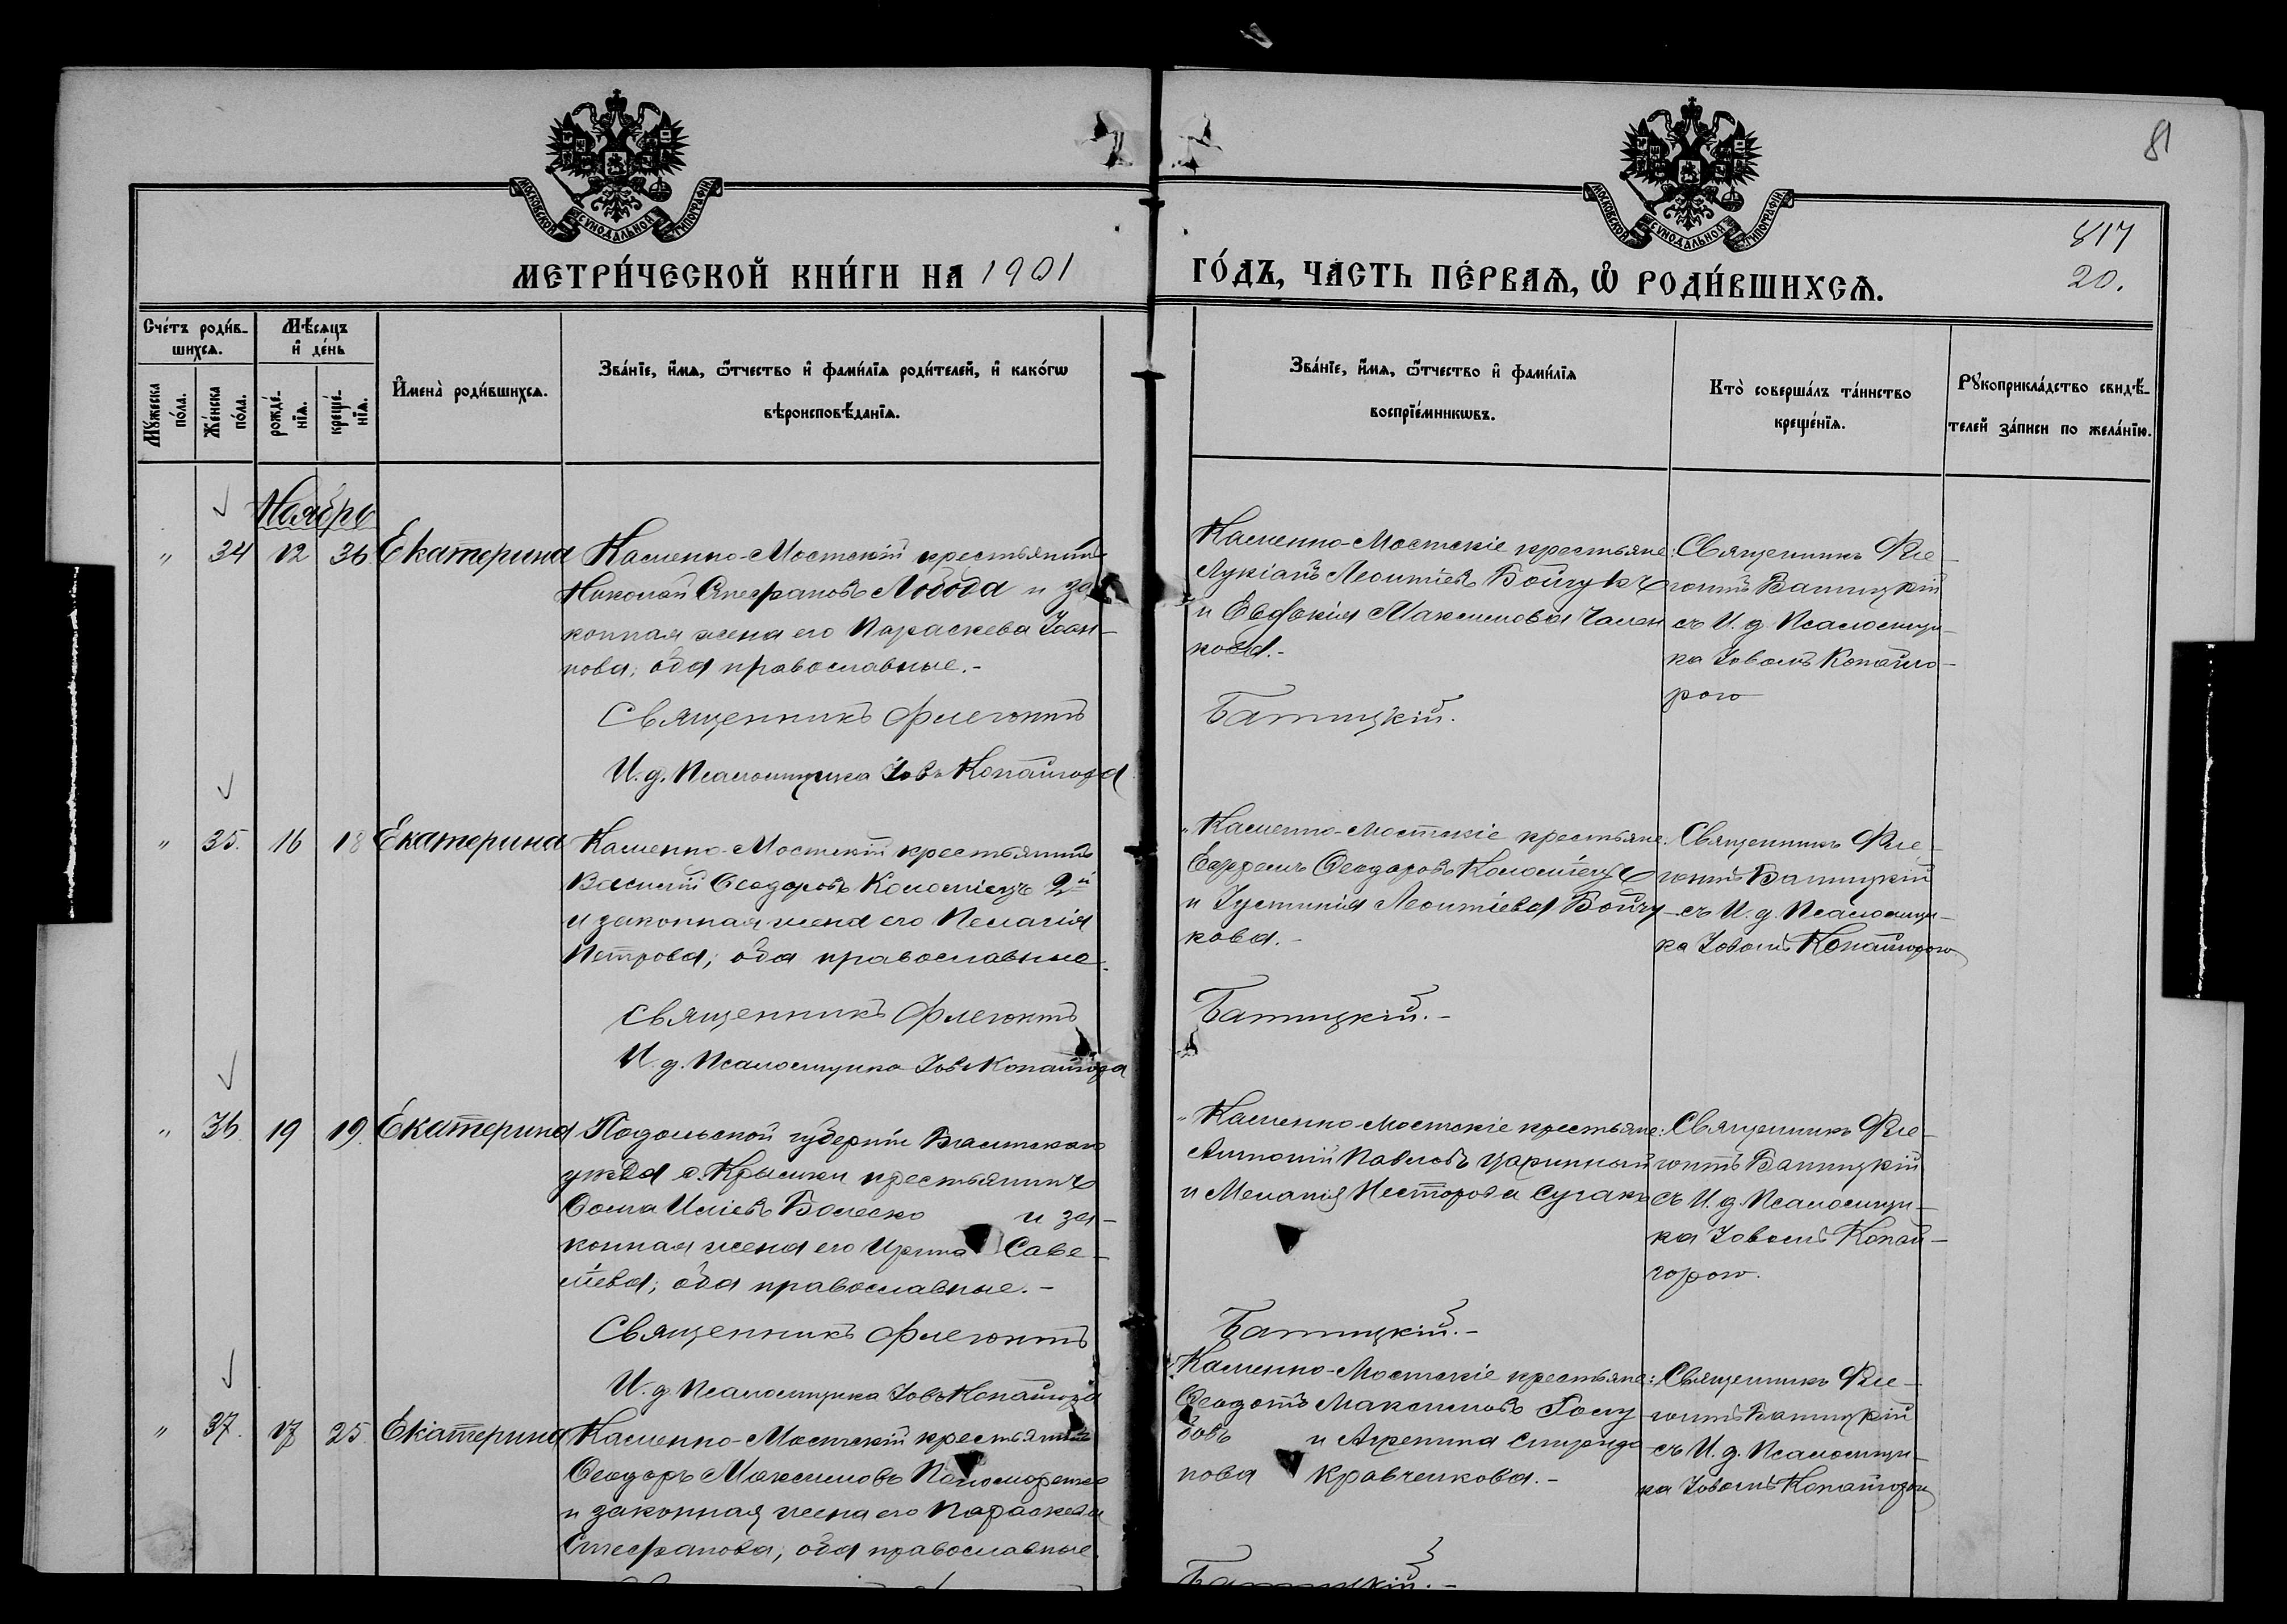 81
817
20.
МОСКОВСКОЙ СѴНОДАЛЬНОЙ ТИПОГРАФІИ
МОСКОВСКОЙ СѴНОДАЛЬНОЙ ТИПОГРАФІИ
МЕТРИ́ЧЕСКОЙ КНИ́ГИ НА 1901
ГО́ДЪ, ЧА́СТЬ ПЕ́РВАѦ, Ѡ РОДИ́ВШИХСѦ.
Сче́тъ роди́в-
шихсѧ.
Мѣ́сѧцъ
и҆ де́нь
Мꙋ́жеска
по́ла.
Же́нска
по́ла.
рожде́-
нїѧ.
креще́-
нїѧ.
И҆мена̀ роди́вшихсѧ.
Зва́нїе, и҆́мѧ, ѻ҆́тчество и҆ фами́лїѧ роди́телей, и҆ како́гѡ
вѣроисповѣ́данїѧ.
Зва́нїе, и҆́мѧ, ѻ҆́тчество и҆ фами́лїѧ
воспрїе́мникѡвъ.
Кто̀ соверша́лъ та́инство
креще́нїѧ.
Рꙋкоприкла́дство свидѣ́-
телей за́писи по жела́нїю.
Ноябрь
" 34 12 Екатерина
Каменно-Мостскій крестьянинъ
Николай Стефановъ Лобода и за-
конная жена его Параскева Іоан-
нова; оба православные.-
Священникъ Флегонтъ
И. д. Псаломщика Іовъ Копайгора
Каменно-Мостскіе крестьяне:
Лукіанъ Леонтіевъ Бойчукъ
и Евдокія Максимова
кова.-
Батицкій.
Священникъ Фле-
гонтъ Батицкій
съ И. д. Псаломщи-
ка Іовомъ Копайго-
рою
" 35. 16 18 Екатерина
Каменно-Мостскій крестьянинъ
Василій Ѳеодоровъ Коломіецъ 2й
и законная жена его Пелагія
Петрова; оба православные.
Священникъ Флегонтъ
И. д. Псаломщика Іовъ Копайгора
Каменно-Мостскіе крестьяне:
Ефремъ Ѳеодоровъ Коломіецъ
и Іустинія Леонтіева Бойчу-
кова.-
Батицкій.-
Священникъ Фле-
гонтъ Батицкій
съ И. д. Псаломщи-
ка Іовомъ Копайгорою
" 36. 19 19. Екатерина
Подольской губерніи Балтскаго
уѣзда с. крестьянинъ
Ѳома и за-
конная жена его Ирина Саве-
ліева; оба православные.-
Священникъ Флегонтъ
И. д. Псаломщика Іовъ Копайгора
Каменно-Мостскіе крестьяне:
Антоній Павловъ Царинный
и Меланія Несторова
Батицкій.-
Священникъ Фле-
гонтъ Батицкій
съ И. д. Псаломщи-
ка Іовомъ Копай-
горою.
" 37. 17 25. Екатерина
Каменно-Мостскій крестьянинъ
Ѳеодоръ Максимовъ
и законная жена его Параскева
Стефанова; оба православные.
Каменно-Мостскіе крестьяне:
Ѳеодотъ Максимовъ Голу
бовъ и Агрепина Спиридо
нова Кравченкова.-
Батицкій.-
Священникъ Фле-
гонтъ Батицкій
съ И. д. Псаломщи-
ка Іовомъ Копайгорою